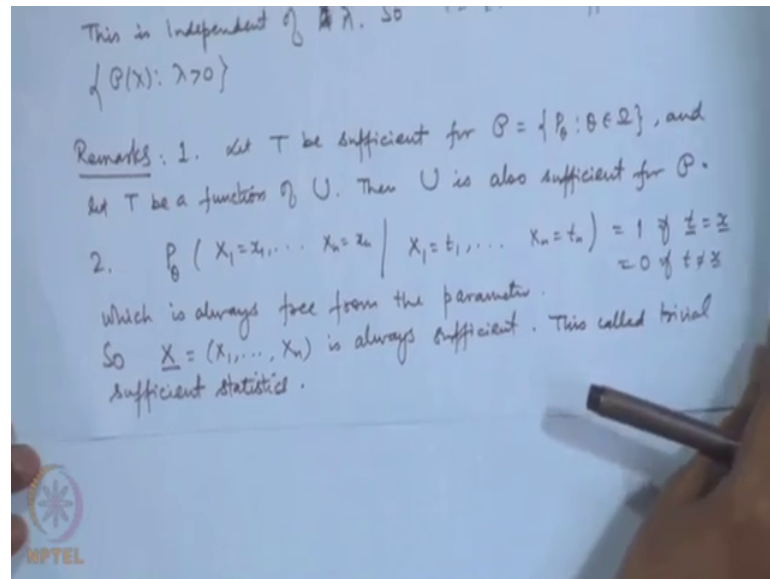 This is Independent of λ. So
{P(λ): λ>0}
Remarks: 1. Let T be sufficient for P = {P_θ : θ ∈ Ω}, and
let T be a function of U. Then U is also sufficient for P.
2. P_θ ( X₁=x₁, ... Xₙ=xₙ | X₁=t₁, ... Xₙ=tₙ ) = 1 if t = x
= 0 if t ≠ x
which is always free from the parameter.
So X = (X₁, ..., Xₙ) is always sufficient. This called trivial
sufficient statistics.
NPTEL